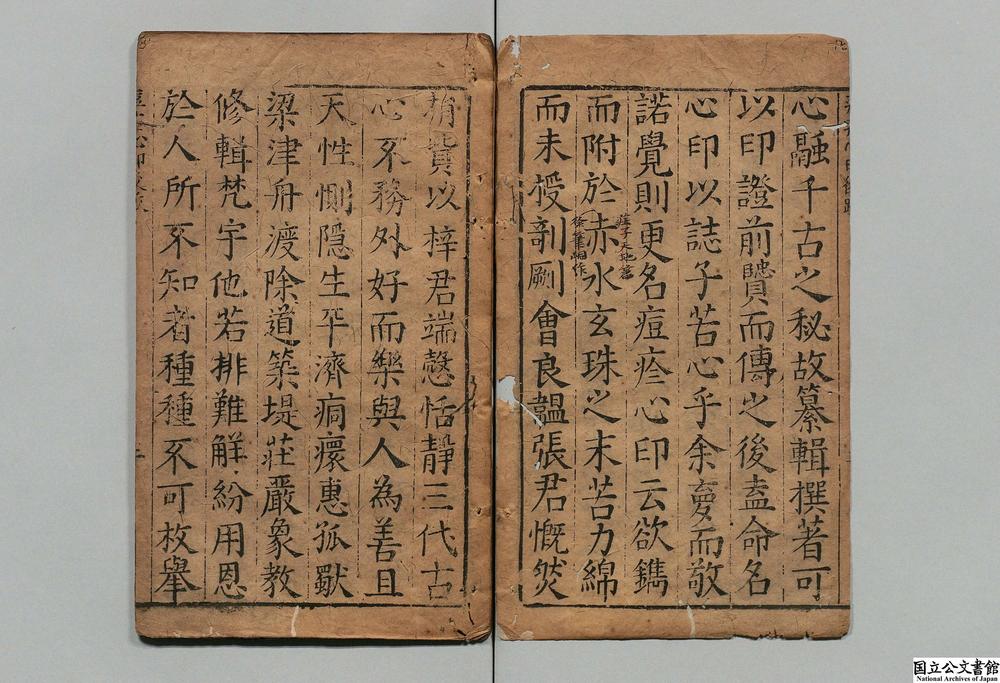 心融千古之秘故纂輯撰著可
以印證前賢而傳之後盍命名
心印以誌子苦心乎余夢而敬
諾覺則更名痘疹心印云欲鐫
莊子天地篇
而附於赤水玄珠之末苦力綿
而未授剞劂會良韞張君慨然
捐貲以梓君端愨恬靜三代古
心不務外好而樂與人為善且
天性惻隱生平濟痌瘝惠孤獸
梁津舟渡除道築堤莊嚴象教
修輯梵宇他若排難解紛用恩
於人所不知者種種不可枚舉
国立公文書館
National Archives of Japan